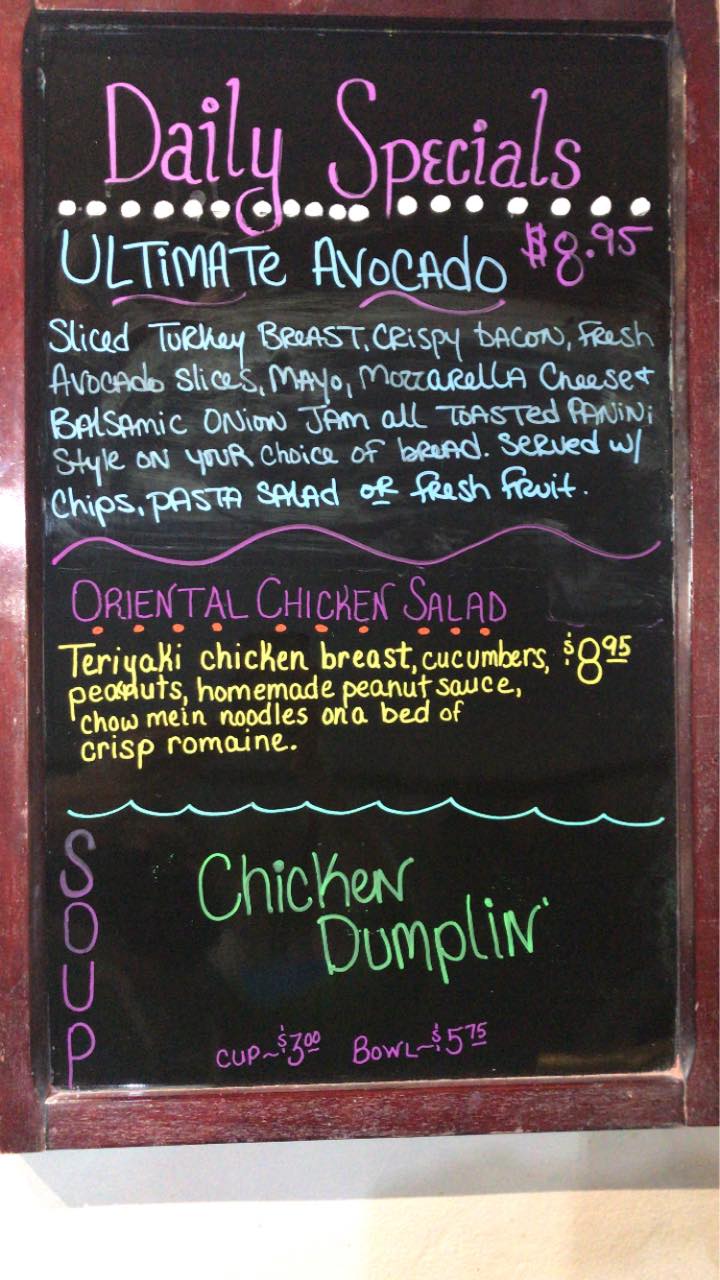 Daily Specials
ULTIMATE AVOCADO $8.95
Sliced Turkey Breast, Crispy bacon, Fresh
Avocado slices, Mayo, Mozzarella Cheese &
Balsamic Onion Jam all Toasted Panini
Style on your choice of bread. Served w/
Chips, Pasta Salad or fresh fruit.
ORIENTAL CHICKEN SALAD
Teriyaki chicken breast, cucumbers, $8.95
peanuts, homemade peanut sauce,
chow mein noodles on a bed of
crisp romaine.
SOUP
Chicken
Dumplin'
CUP~$3.00 BOWL~$5.75